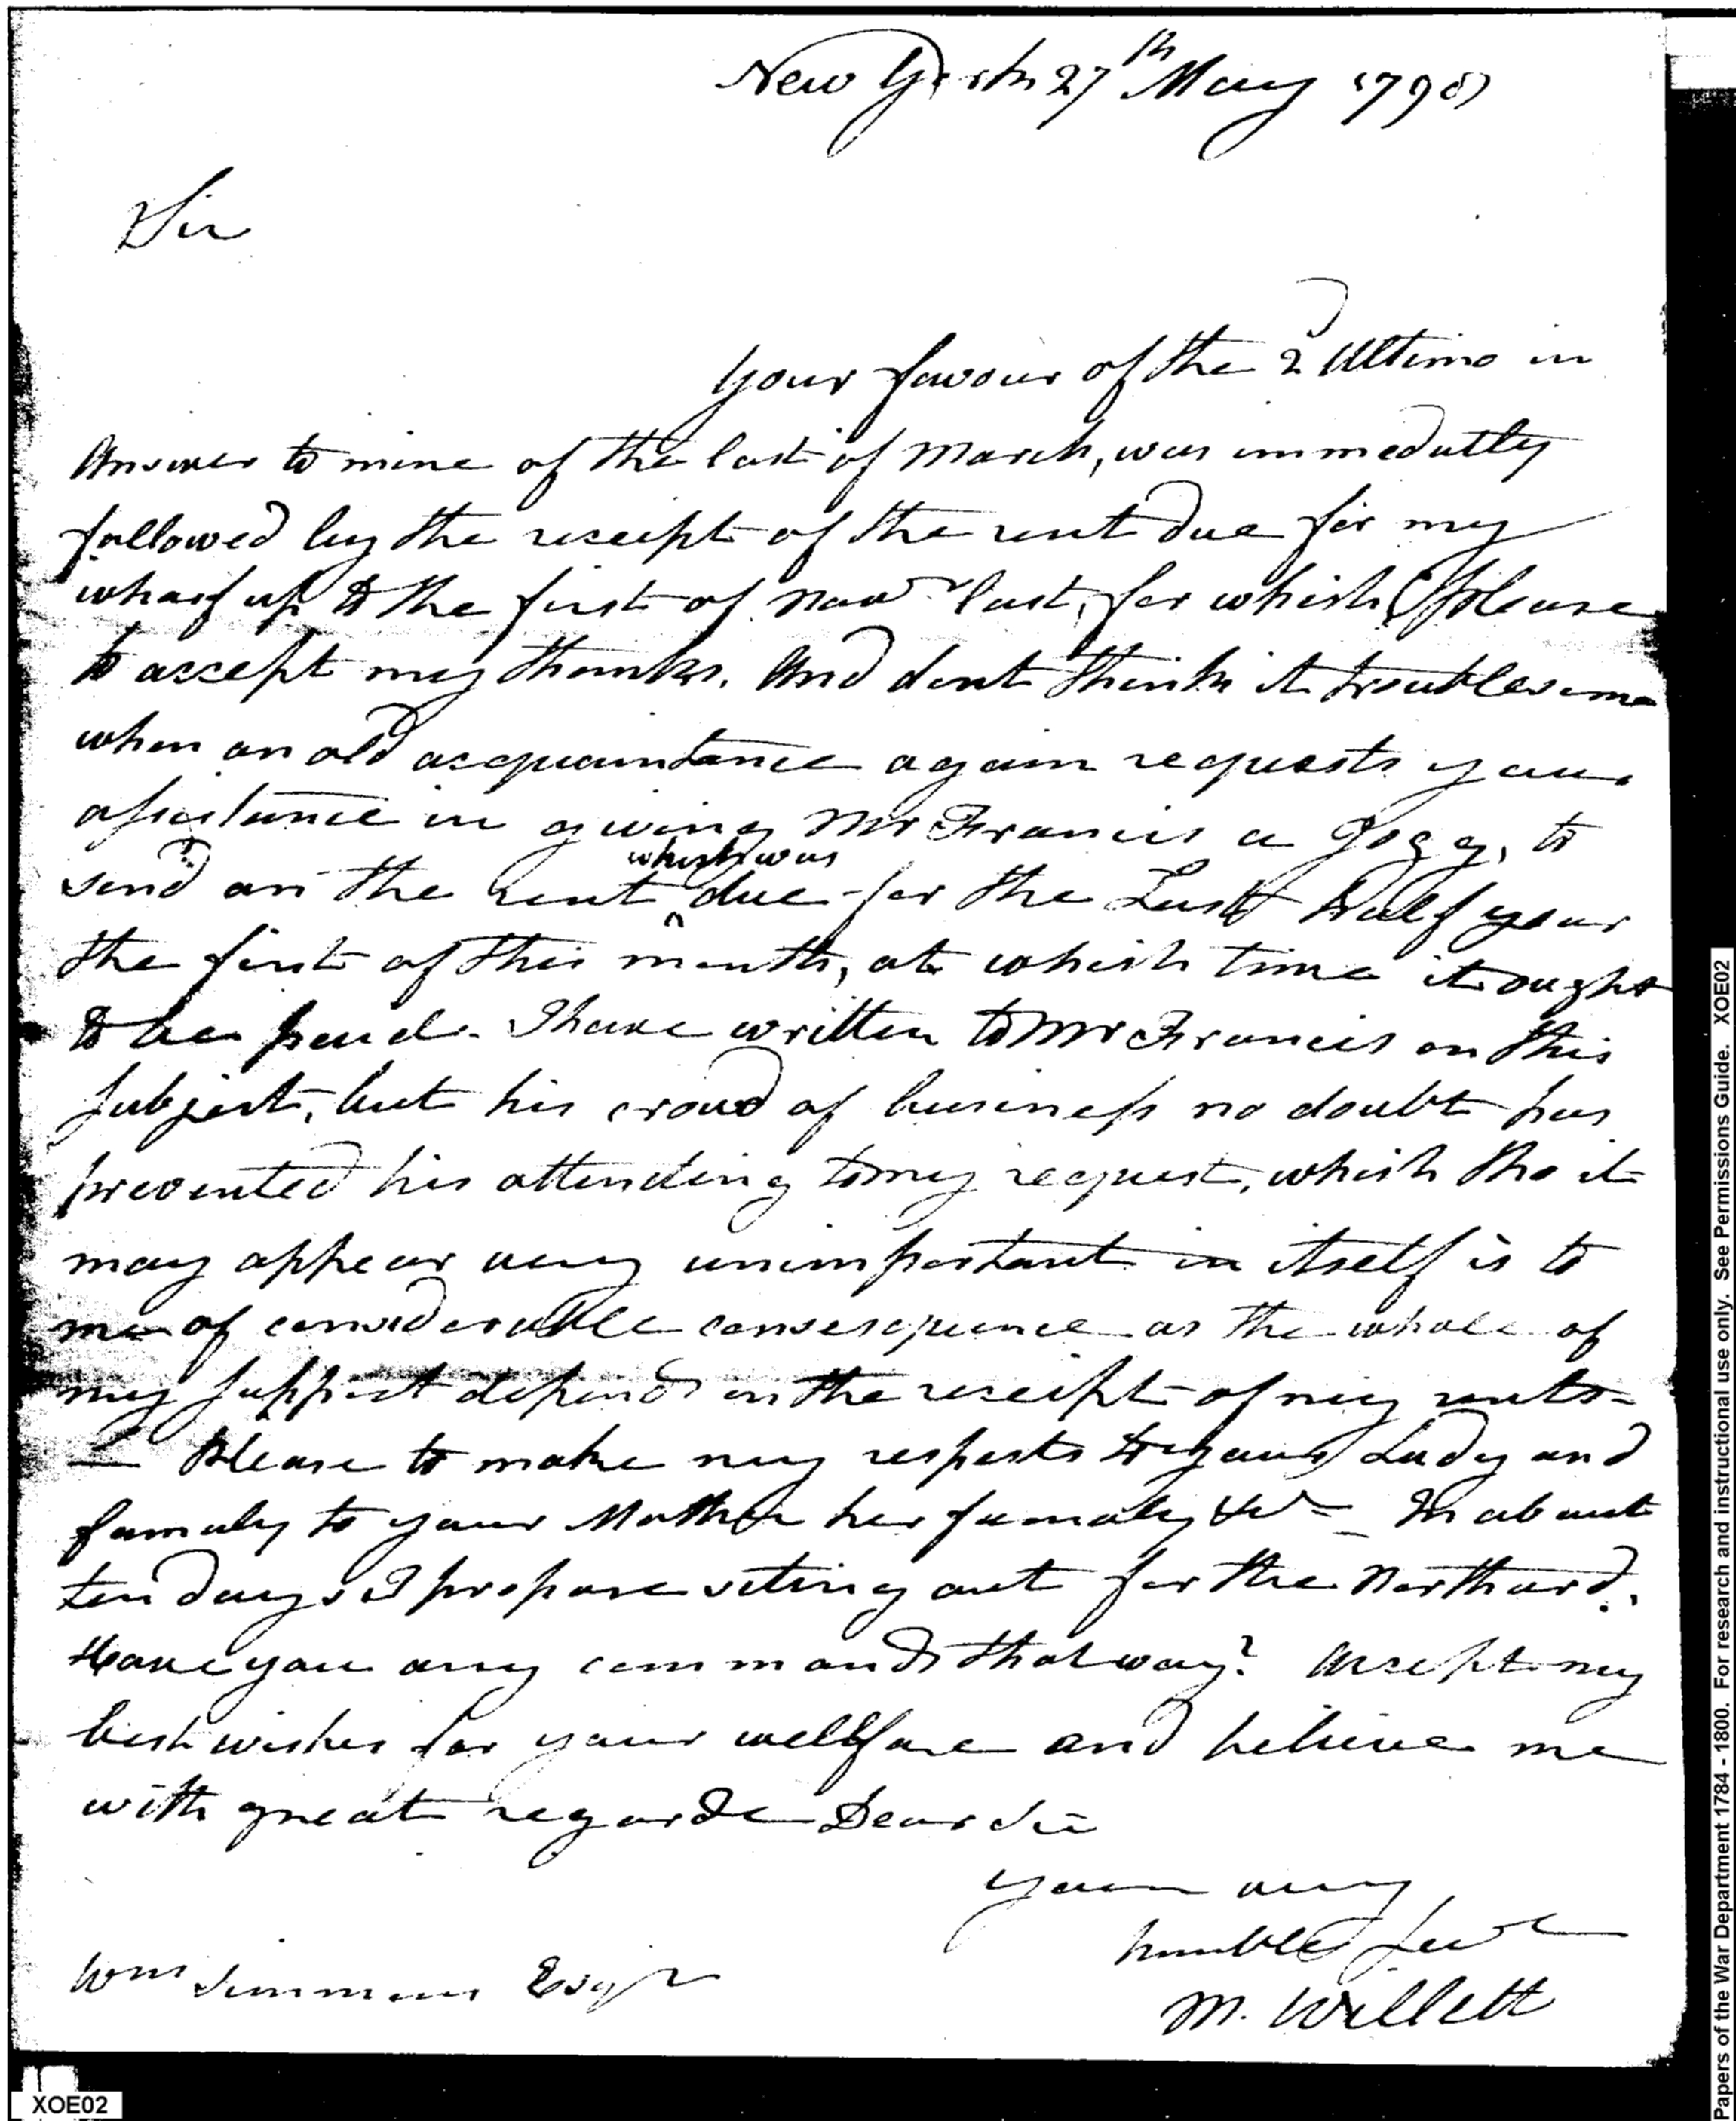 New York 27th May 1798
Sir
Your favour of the 2d Ultimo in
Answer to mine of the last of March, was immedatley
followed by the receipt of the rent due for my
wharf up to the first of Novr last, for which please
to accept my thanks. And dont think it troublesome
when an old acquaintance again requests your
assistance in giving Mr Francis a Jogg, to
send on the rent which was due for the Last half year
the first of this month, at which time it ought
to be paid. I have written to Mr Francis on this
subject, but his croud of business no doubt has
prevented his attending to my request, which tho it
may appear very unimportant in itself is to
me of considerable consequence as the whole of
my support depends on the receipt of my rents-
— Please to make my respects to your Lady and
famaly to your Mother her famaly &c - In about
ten days I propose seting out for the Northard.
Have you any commands that way? Accept my
best wishes for your wellfare and believe me
with great regarde Dear Sir
Your very
humble Servt
M. Willett
Wm Simmons Esqr
XOE02
Papers of the War Department 1784 - 1800. For research and instructional use only. See Permissions Guide. XOE02